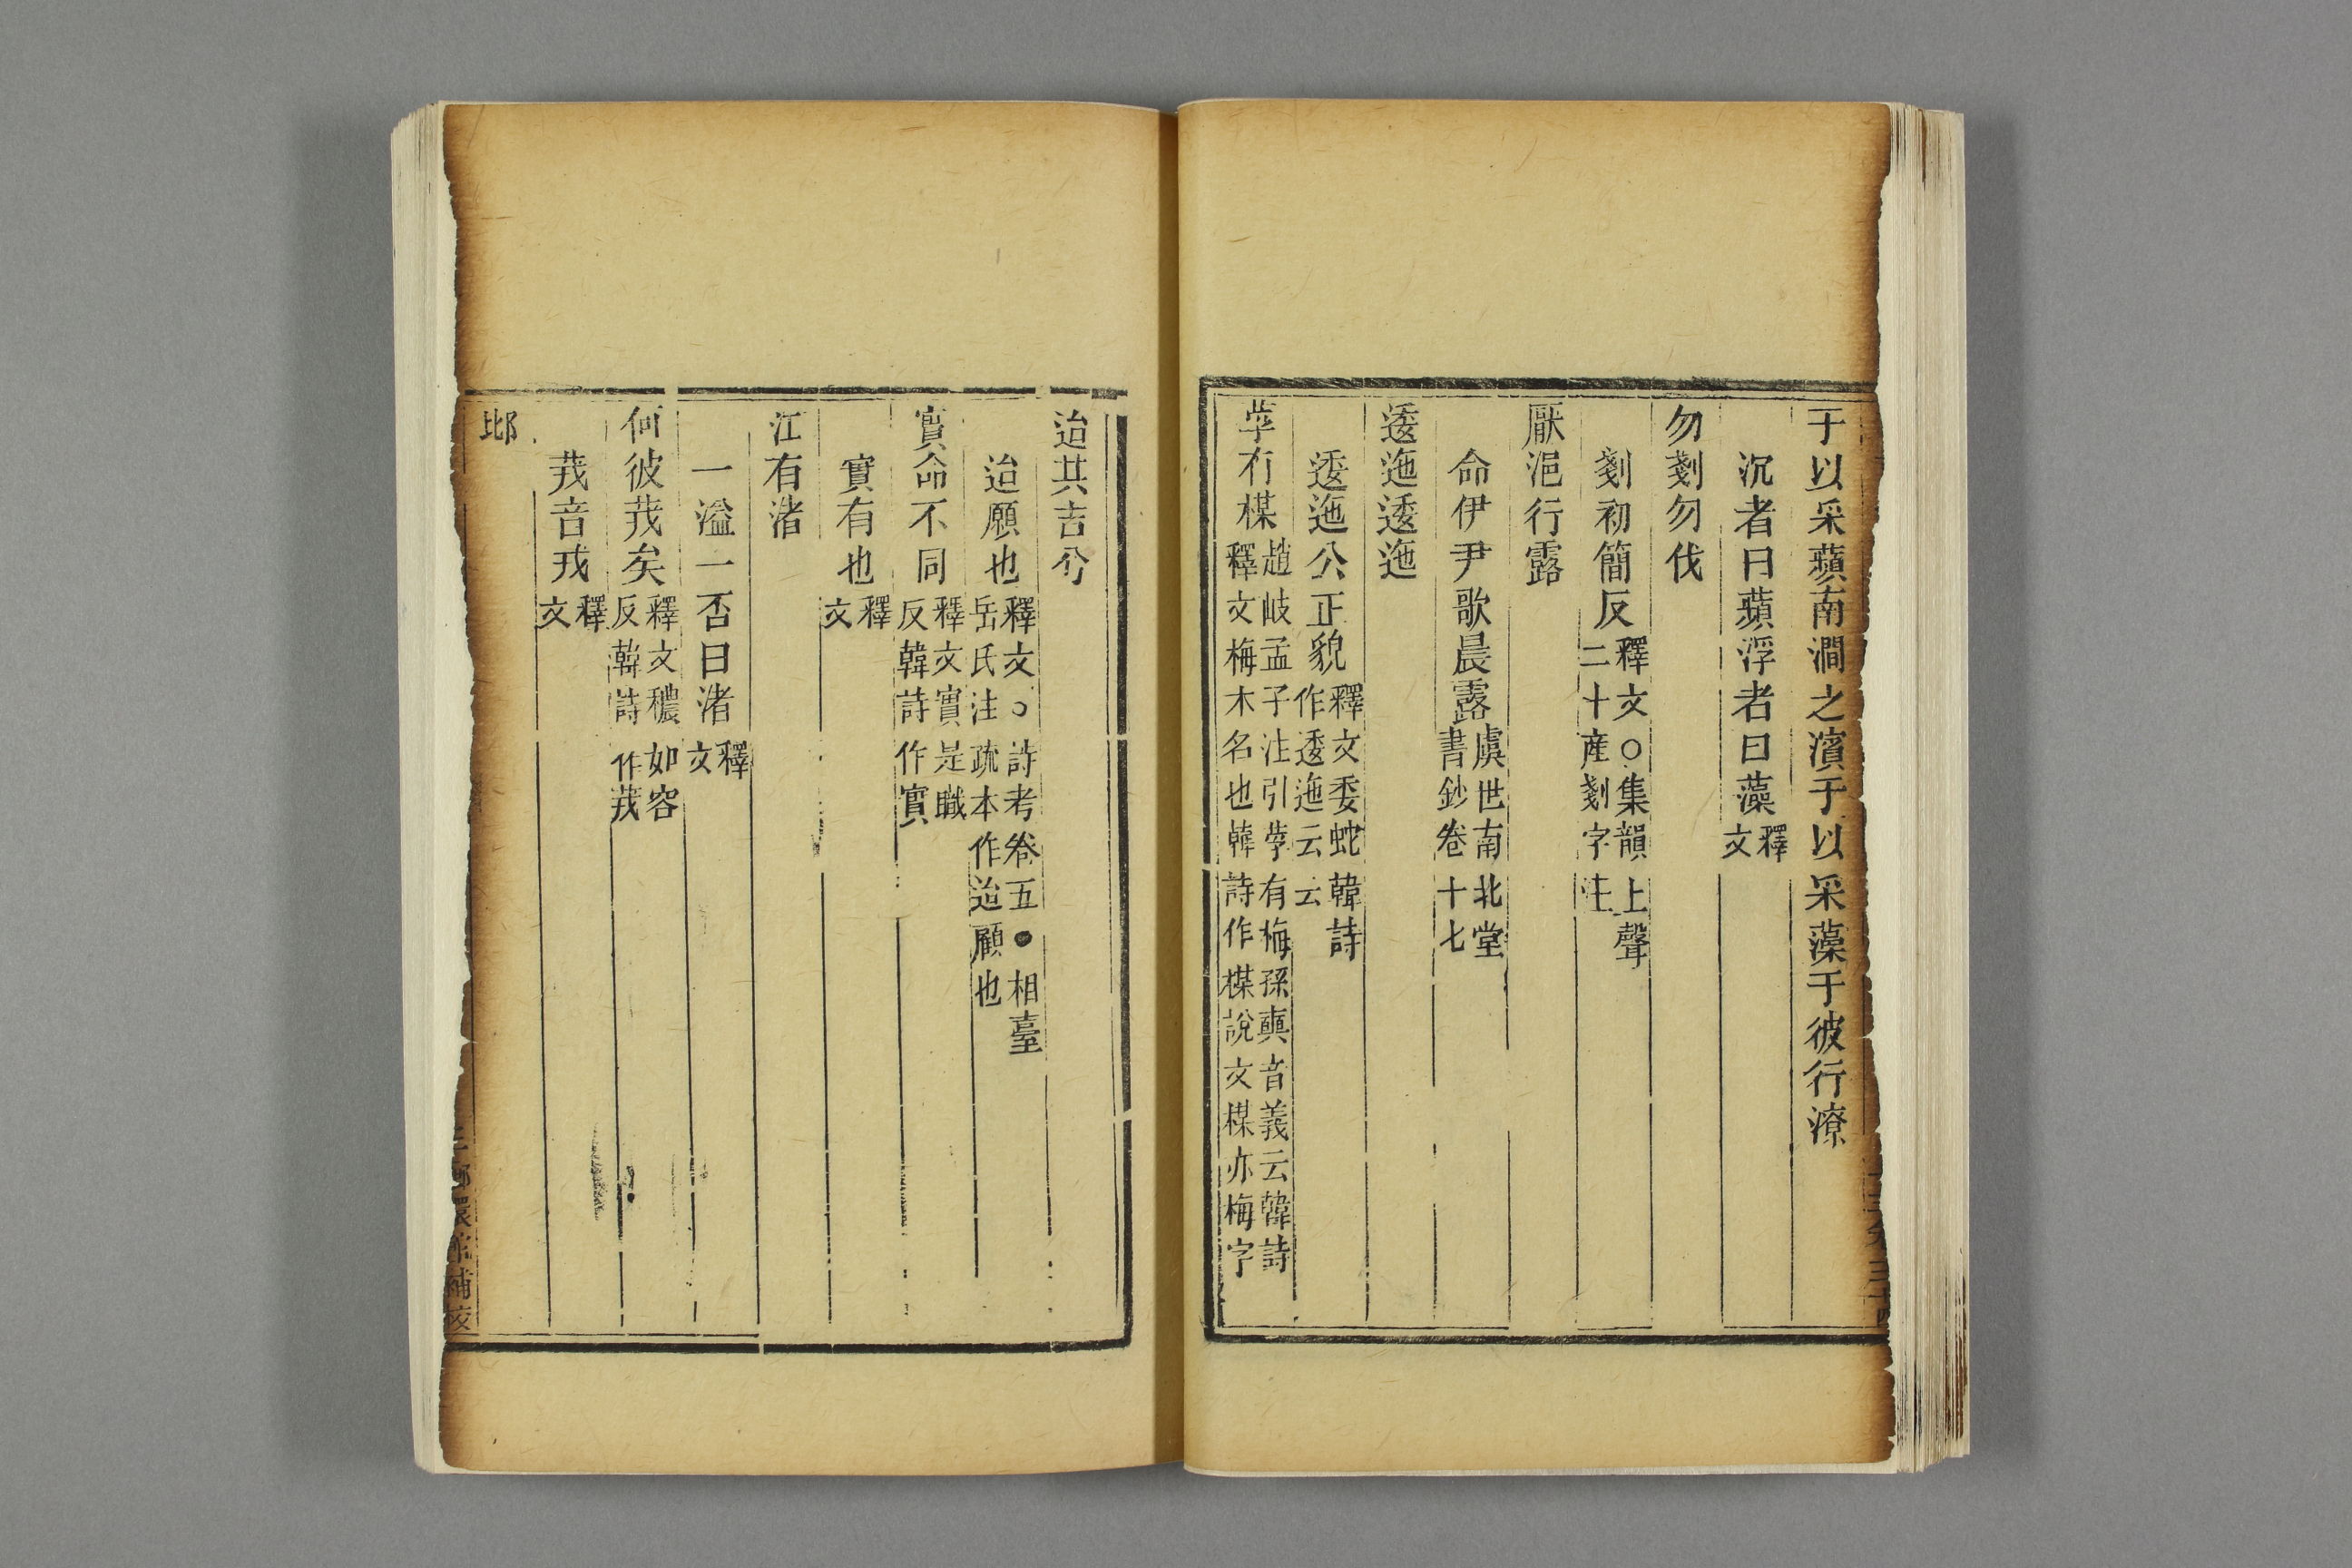 于以采蘋南澗之濱于以采藻于彼行潦
沉者曰蘋浮者曰藻釋文
勿剗勿伐
剗初簡反釋文○集韻上聲
二十産剗字注
厭浥行露
命伊尹歌晨露虞世南北堂
書鈔卷十七
逶迤逶迤
逶迤公正貌釋文委蛇韓詩
作逶迤云云
莩有楳趙岐孟子注引莩有梅孫奭音義云韓詩
釋文梅木名也韓詩作楳說文楳亦梅字
迨其吉兮
迨願也釋文○詩考卷五●相臺
岳氏注疏本作迨顧也
實命不同釋文實是職
反韓詩作實
實有也釋文
江有渚
一溢一否曰渚釋文
何彼茙矣釋文穠如容
反韓詩作茙
茙音戎釋文
邶
補校